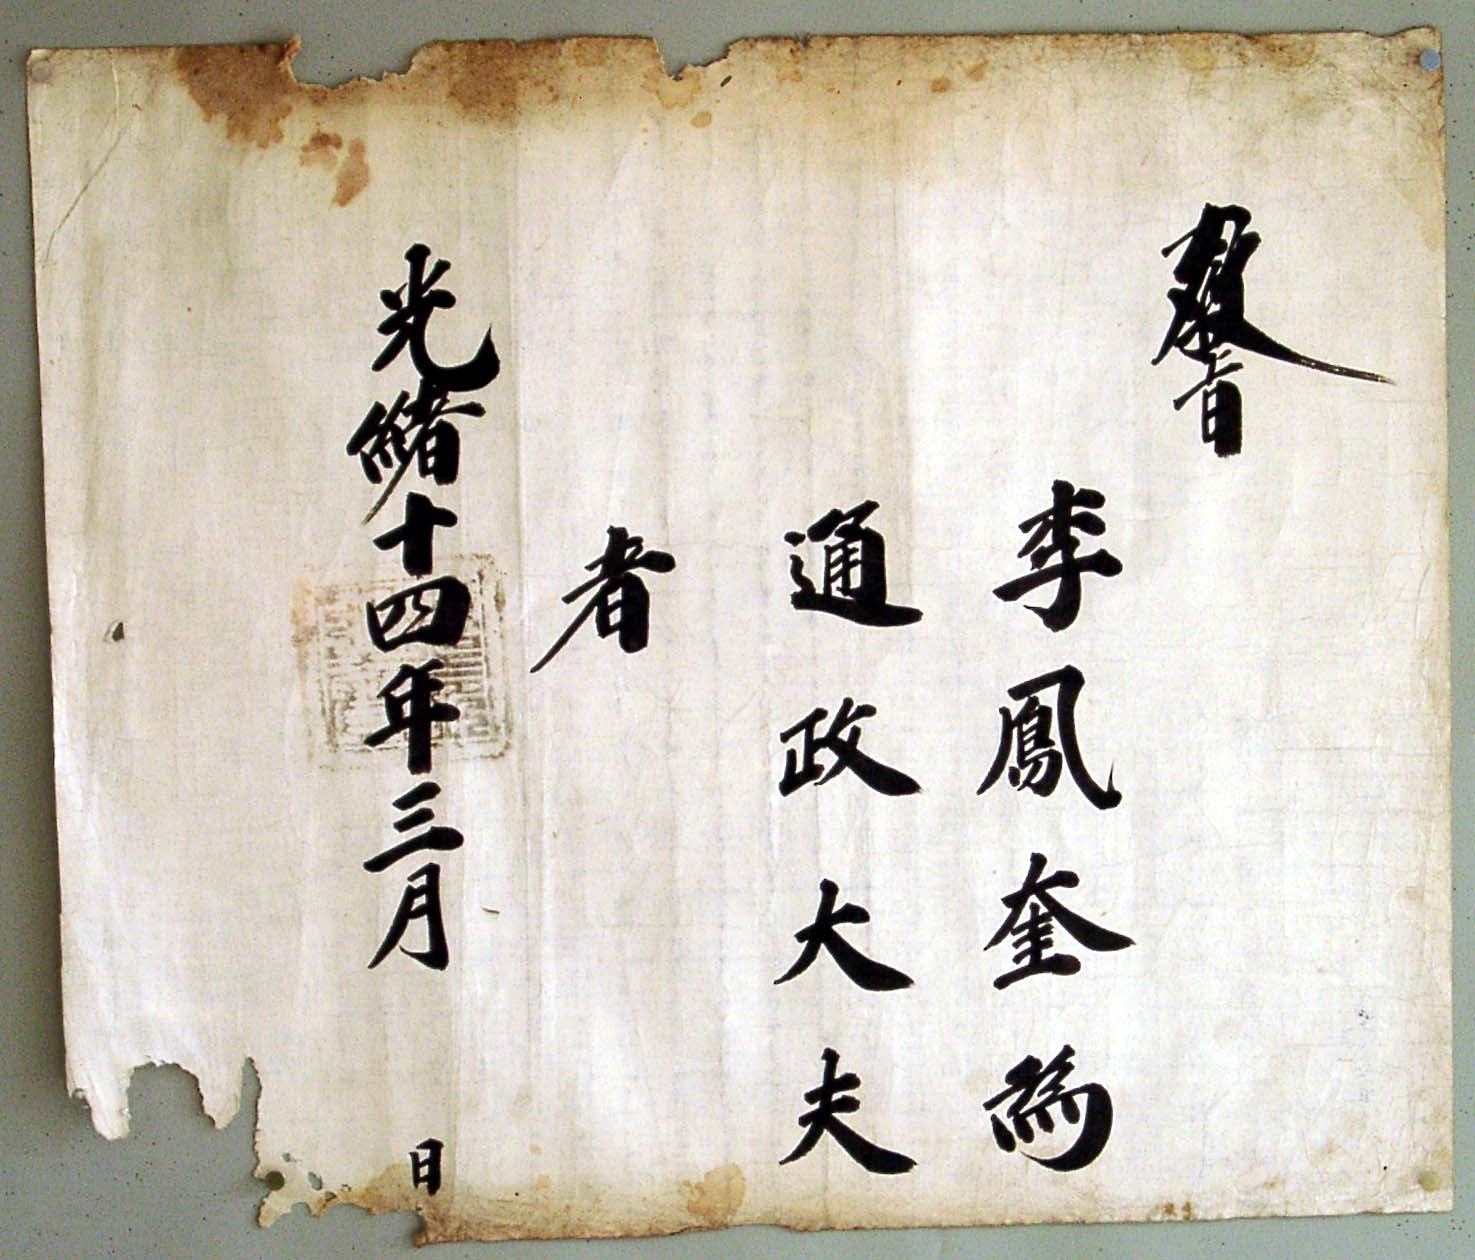 敎旨
李鳳奎爲
通政大夫
者
光緖十四年三月 日